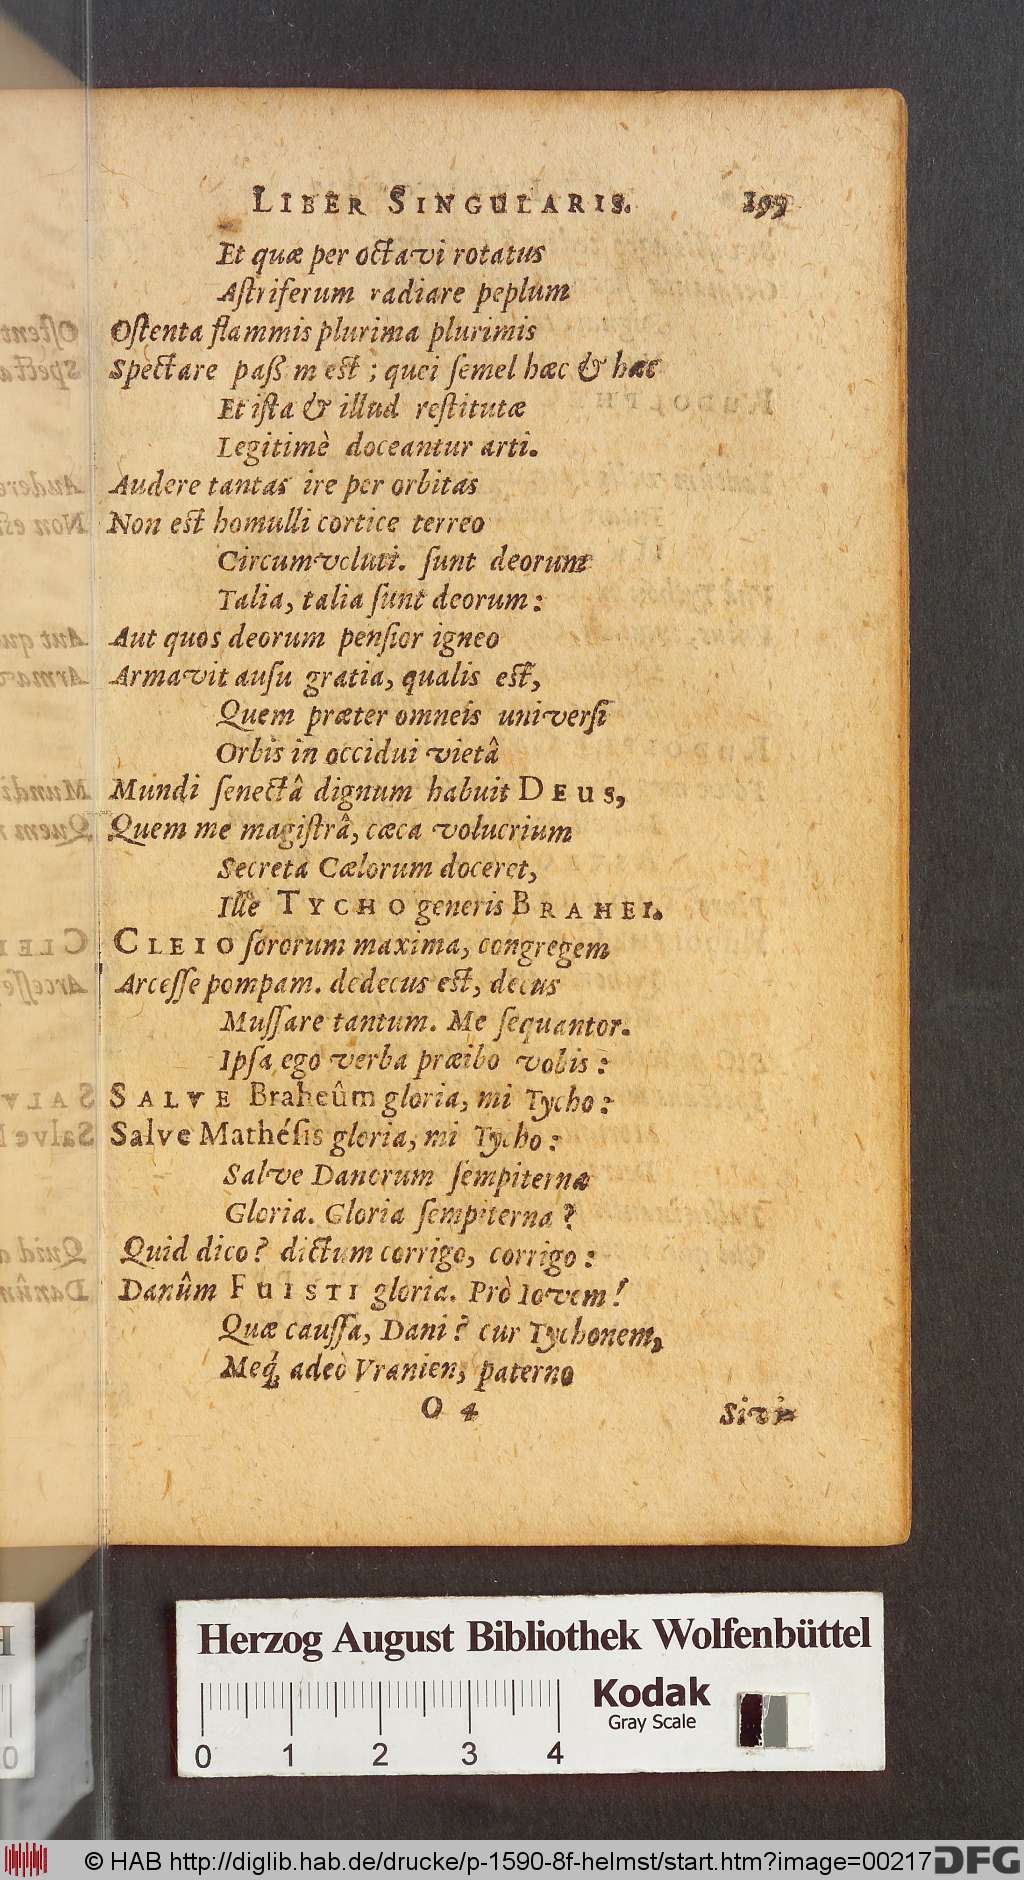 LIBER SINGULARIS. 199
Et quæ per octavi rotatus
Aſtriferum radiare peplum
Oſtenta flammis plurima plurimis
Spectare paß m eſt ; quei ſemel hæc & hæc
Et iſta & illud reſtitutæ
Legitimè doceantur arti.
Audere tantas ire per orbitas
Non eſt homulli cortice terreo
Circumvoluti. ſunt deorum
Talia, talia ſunt deorum :
Aut quos deorum penſior igneo
Armavit auſu gratia, qualis eſt,
Quem præter omneis univerſi
Orbis in occidui vietâ
Mundi ſenectâ dignum habuit DEUS,
Quem me magiſtrâ, cæca volucrium
Secreta Cælorum doceret,
Ille TYCHO generis BRAHEI.
CLEIO ſororum maxima, congregem
Arceſſe pompam. dedecus eſt, decus
Muſſare tantum. Me ſequantor.
Ipſa ego verba præibo vobis :
SALVE Braheûm gloria, mi Tycho :
Salve Mathéſis gloria, mi Tycho :
Salve Danorum ſempiterna
Gloria. Gloria ſempiterna ?
Quid dico ? dictum corrigo, corrigo :
Danûm FUISTI gloria. Prò Iovem !
Quæ cauſſa, Dani ? cur Tychonem,
Meq́; adeò Vranien, paterno
O 4 Sivi
Herzog August Bibliothek Wolfenbüttel
Kodak
Gray Scale
0 1 2 3 4
© HAB http://diglib.hab.de/drucke/p-1590-8f-helmst/start.htm?image=00217
DFG